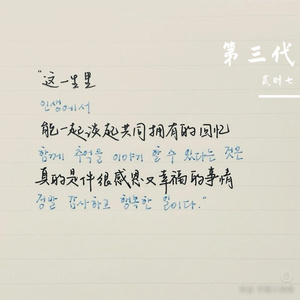 第三代
贰时七
"这一生里
인생에서
能一起谈起共同拥有的回忆
함께 추억을 이야기 할 수 있다는 것은
真的是件很感恩又幸福的事情
정말 감사하고 행복한 일이다."